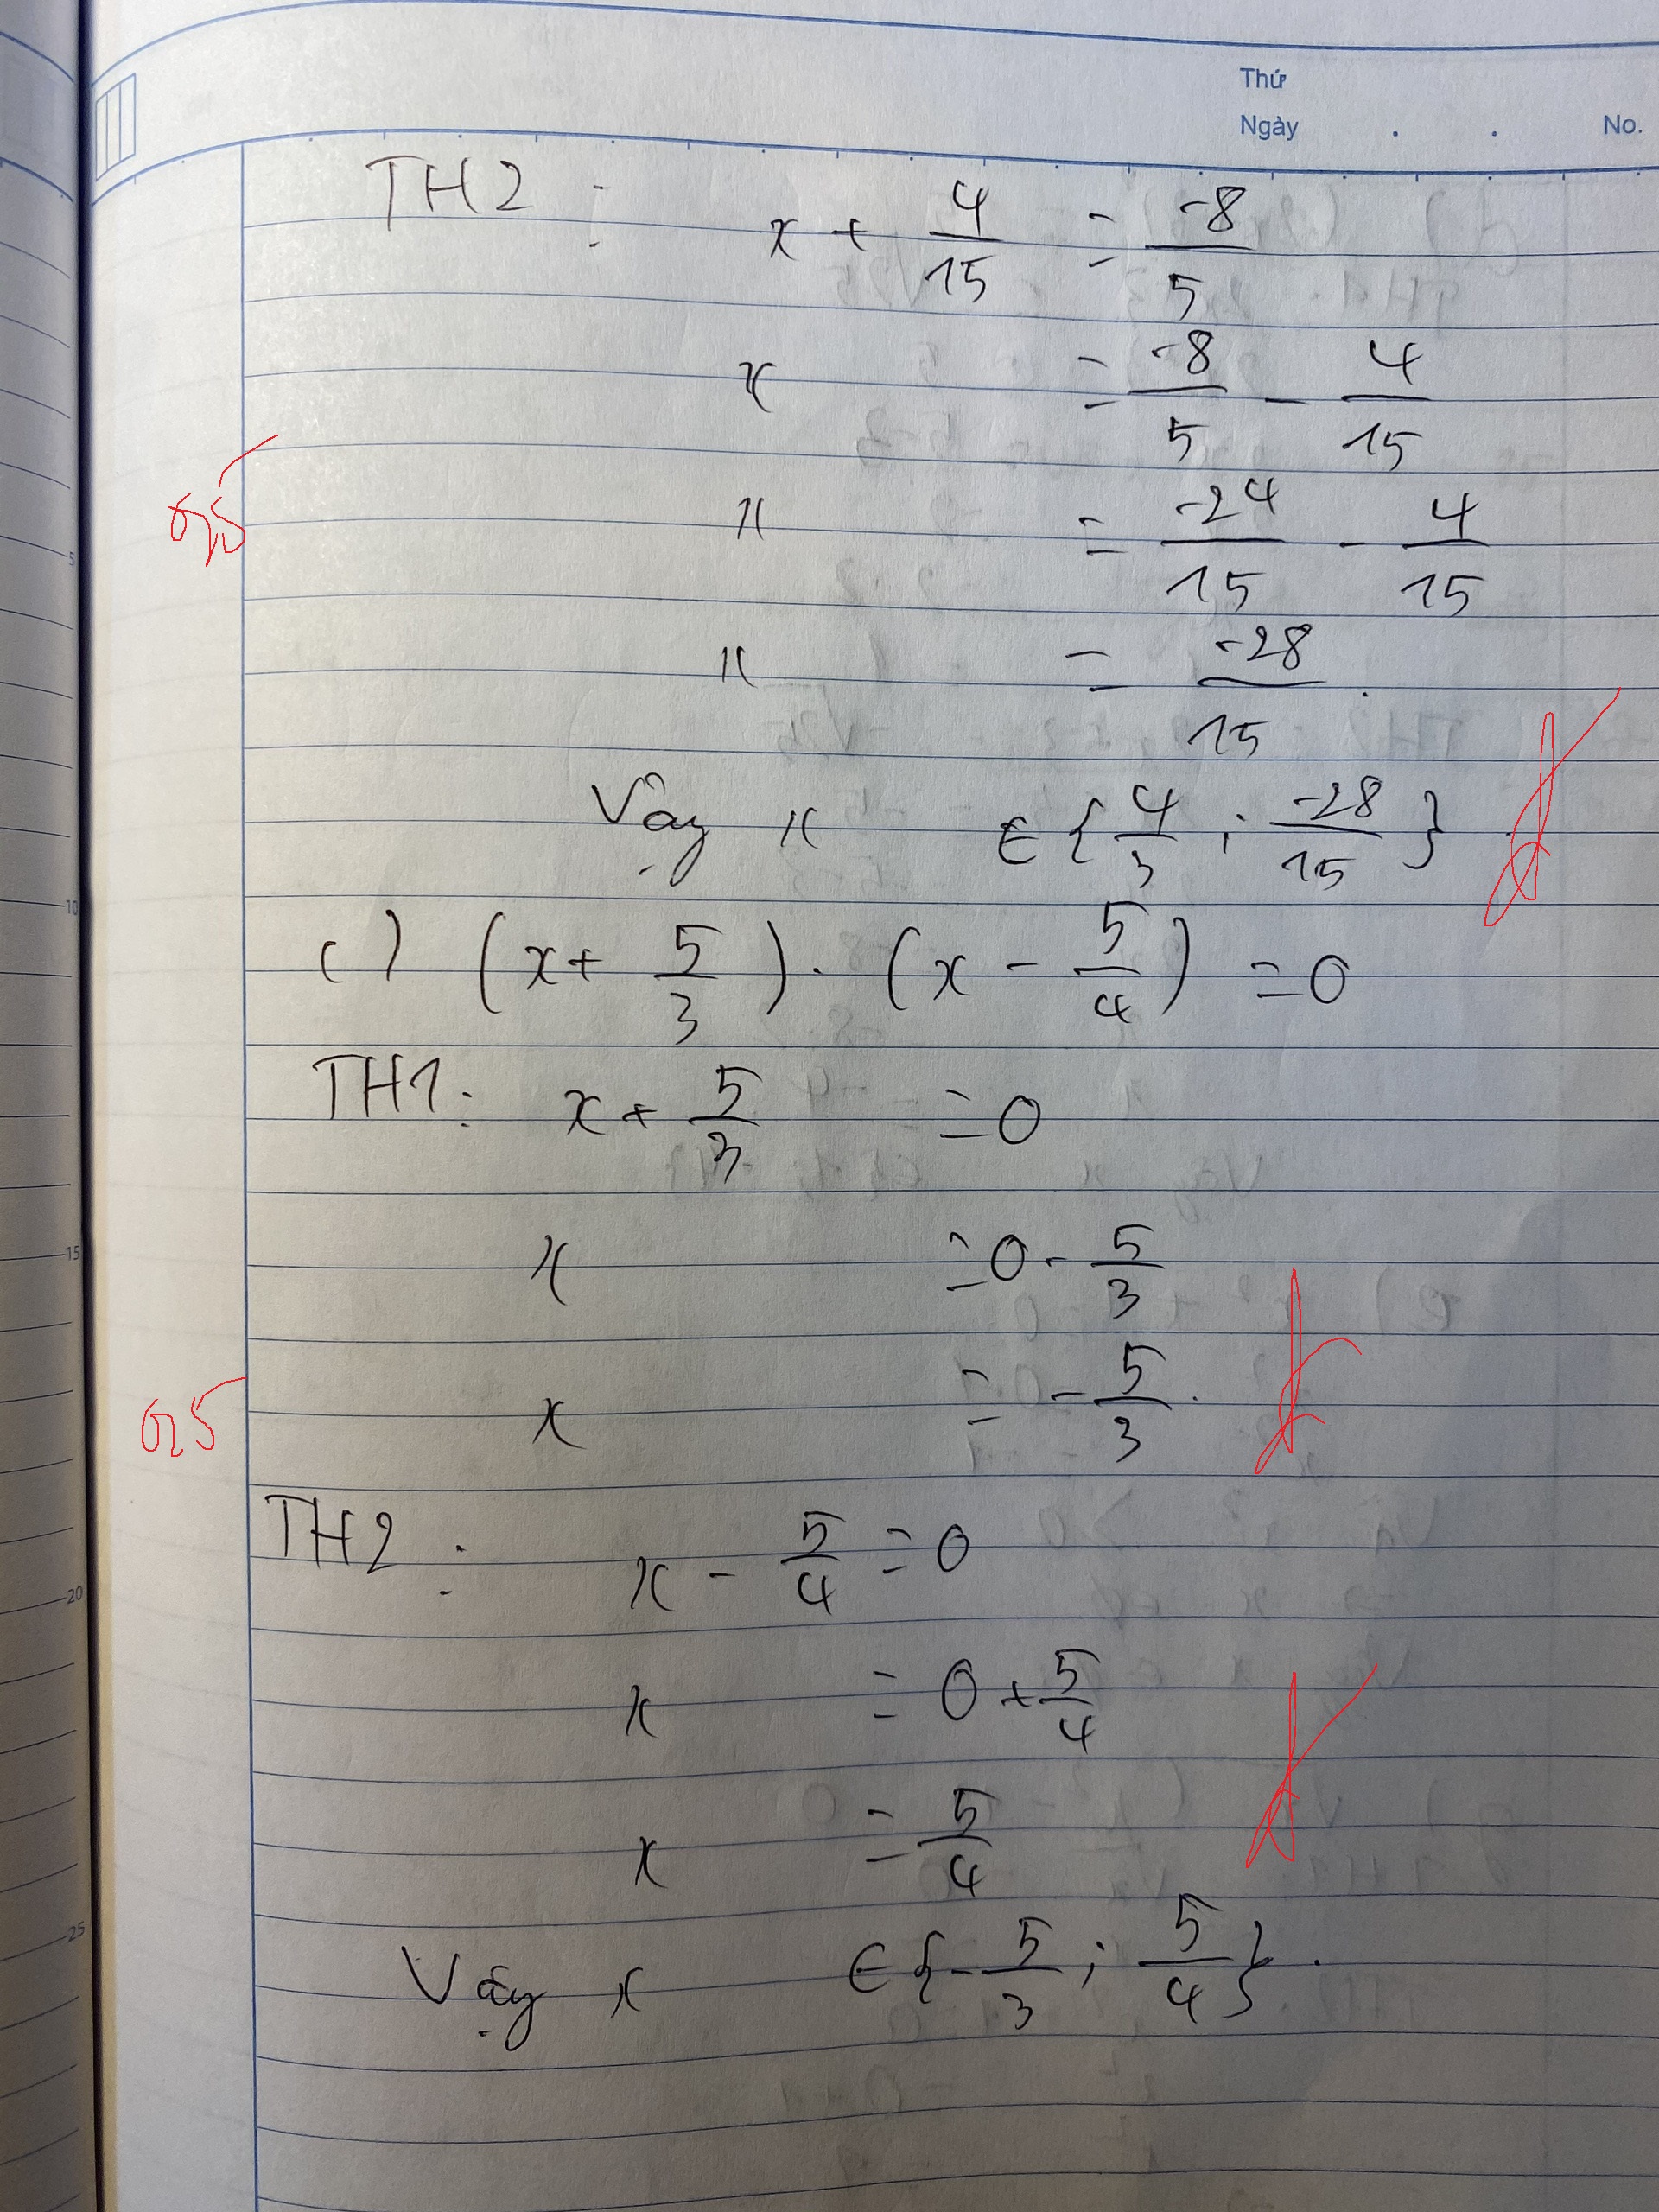 Thứ
Ngày . . No.
TH2 : x + 4/15 = -8/5
x = -8/5 - 4/15
x = -24/15 - 4/15
0,5
x = -28/15 .
Vậy x ∈ { 4/3 ; -28/15 } .
c) (x + 5/3) . (x - 5/4) = 0
TH1 : x + 5/3 = 0
x = 0 - 5/3
x = - 5/3 .
0,5
TH2 : x - 5/4 = 0
x = 0 + 5/4
x = 5/4
Vậy x ∈ { - 5/3 ; 5/4 } .
5
10
15
20
25